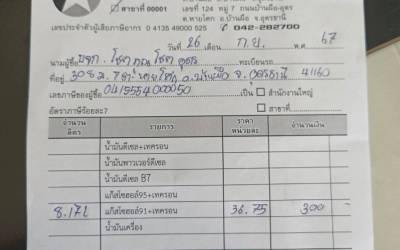 สาขาที่ 00001
เลขที่ 124 หมู่ 7 ถนนบ้านผือ-อุดร
ต.หายโศก อ.บ้านผือ จ.อุดรธานี
เลขประจำตัวผู้เสียภาษีอากร 0 4135 49000 525
042-282700
วันที่ 26 เดือน ก.ย. พ.ศ 67
นามผู้ซื้อ บจก. โชค โชค ทะเบียนรถ
ที่อยู่ 308 ม.7 อ.บ้านผือ จ.อุดรธานี 41160
เลขภาษีของผู้ซื้อ 0415554000050 เป็น สำนักงานใหญ่
อัตราภาษีร้อยละ 7 สาขาที่
จำนวนลิตร รายการ ราคาหน่วยละ จำนวนเงิน
น้ำมันดีเซล+เทครอน
น้ำมันพาวเวอร์ดีเซล
น้ำมันดีเซล B7
แก๊สโซฮอล์95+เทครอน
8.172 แก๊สโซฮอล์91+เทครอน 36.75 300
น้ำมันเครื่อง